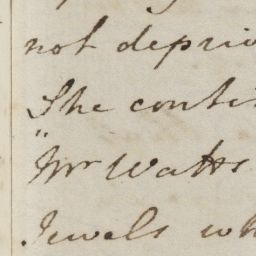 not depriv
She conti
" Mr Watts
Jewels wh